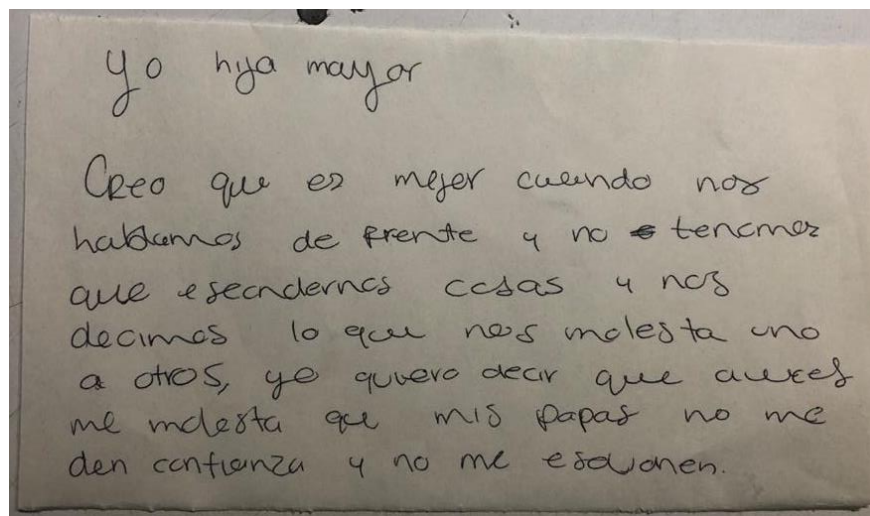 Yo hija mayor
Creo que es mejor cuando nos
hablamos de frente y no tenemos
que escondernos cosas y nos
decimos lo que nos molesta uno
a otros, yo quiero decir que aveces
me molesta que mis papas no me
den confianza y no me escuchen.